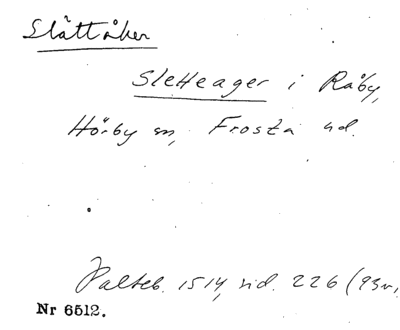 Slättåker
Sletteager i Råby,
Hörby sn, Frosta hd.
Palteb. 1514, sid. 226 (93v.
Nr 6512.